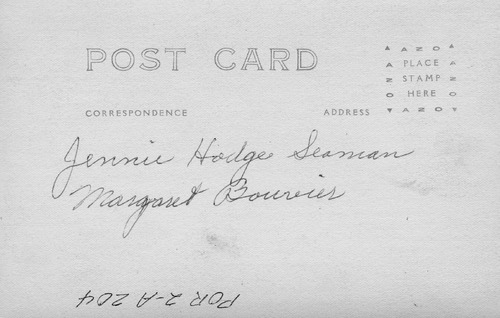 POST CARD
AZO
PLACE
STAMP
HERE
AZO
AZO
AZO
CORRESPONDENCE
ADDRESS
Jennie Hodge Seaman
Margaret Bouvier
POR 2-A 204